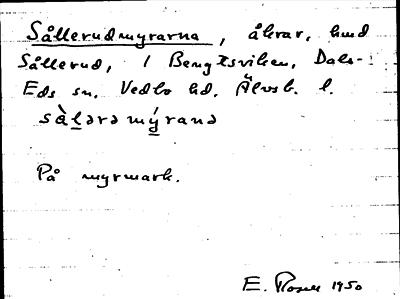 Sållerudmyrarna, åkrar, hmd
Sållerud, i Bengtsviken, Dals-
Eds sn. Vedbo hd. Älvsb. l.
så̀lərə mýranə
På myrmark.
E. Rosell 1950